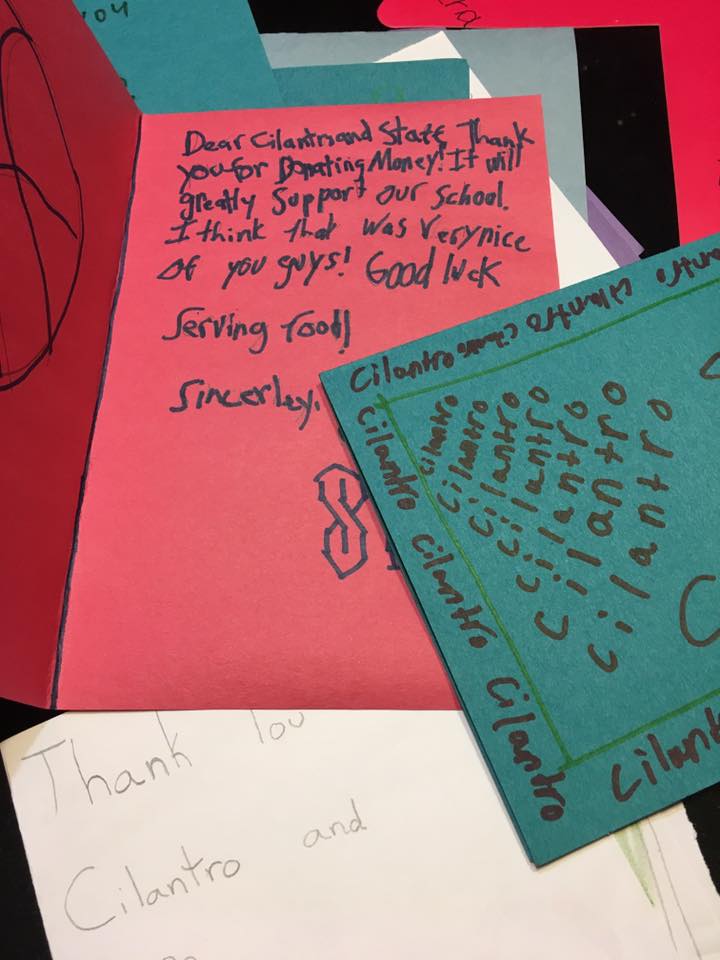 you
Dear Cilantro and Staff, Thank
you for Donating Money! It will
greatly Support our School.
I think that was Very nice
of you guys! Good luck
Serving food!
Sincerley,
Cilantro Cilantro Cilantro Cilantro Cilantro
Cilantro Cilantro Cilantro
cilantro
cilantro
cilantro
cilantro
cilantro
cilantro
cilantro
Cilant
Thank You
Cilantro and